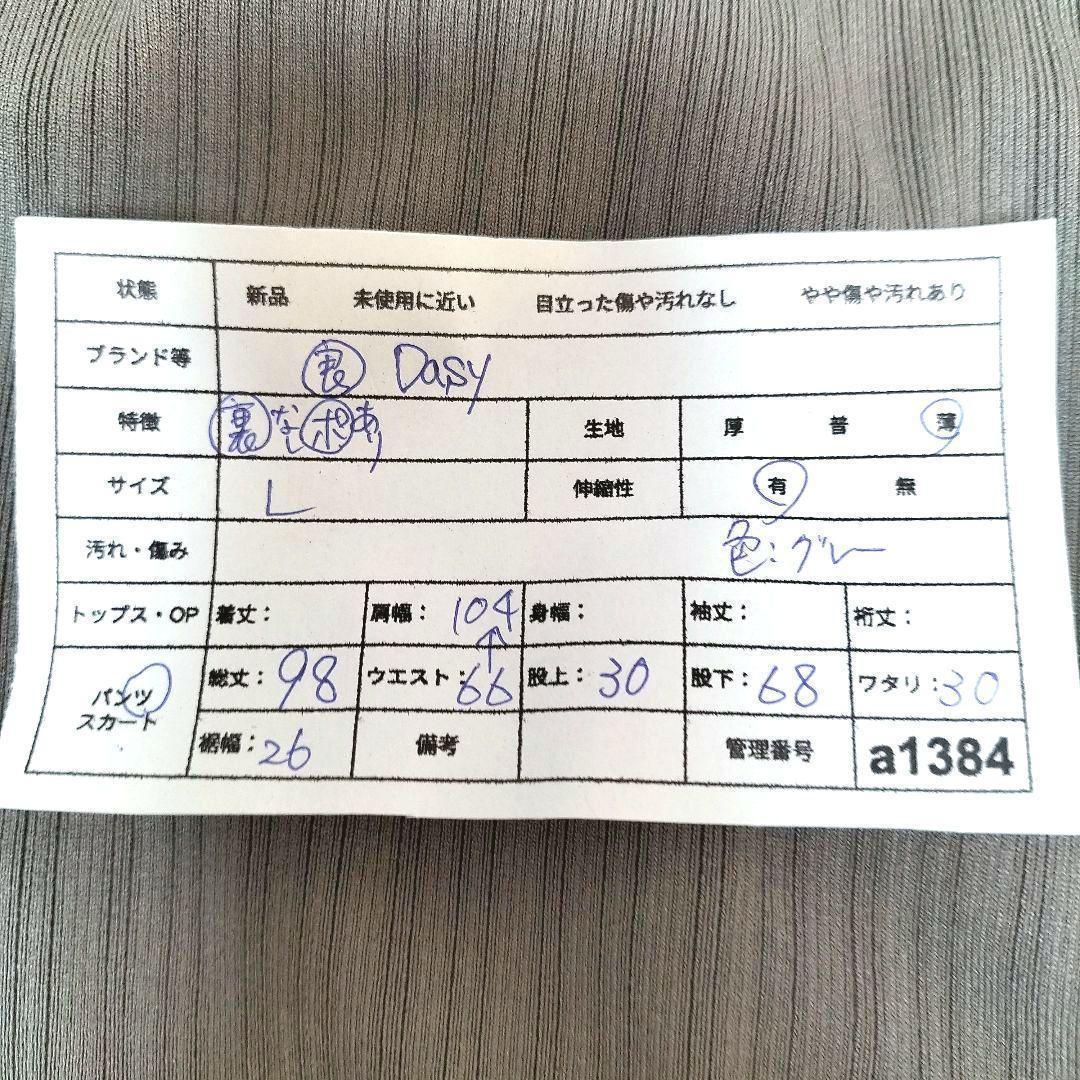 状態 新品 未使用に近い 目立った傷や汚れなし やや傷や汚れあり
ブランド等 Dasy
特徴 裏なしポあり 生地 厚 普 薄
サイズ L 伸縮性 有 無
汚れ・傷み 色:グレー
トップス・OP 着丈: 肩幅: 104 身幅: 袖丈: 裄丈:
パンツ 総丈:98 ウエスト:66 股上:30 股下:68 ワタリ:30
スカート
裾幅:26 備考 管理番号 a1384